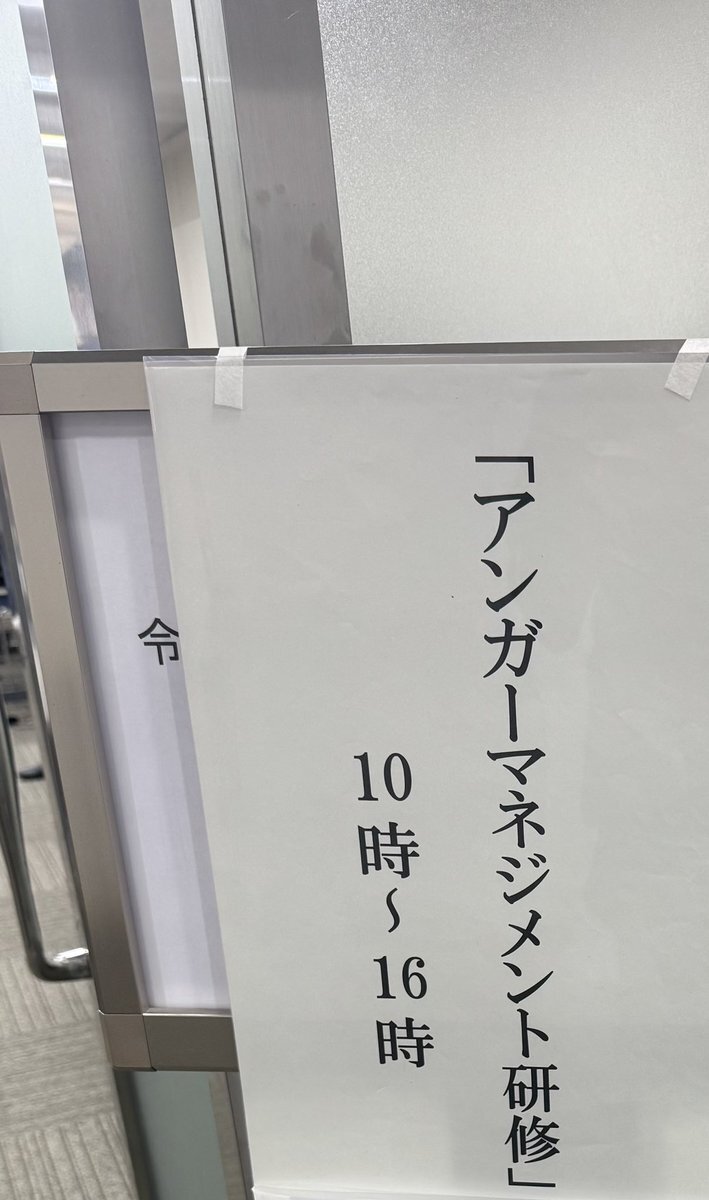 「アンガーマネジメント研修」
10時〜16時
令